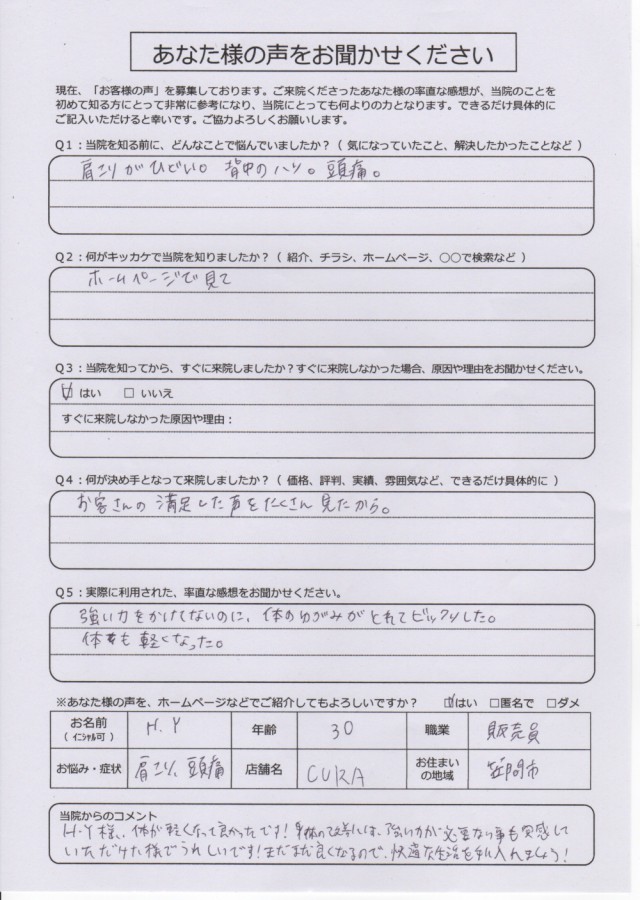 あなた様の声をお聞かせください
現在、「お客様の声」を募集しております。ご来院くださったあなた様の率直な感想が、当院のことを
初めて知る方にとって非常に参考になり、当院にとっても何よりの力となります。できるだけ具体的に
ご記入いただけると幸いです。ご協力よろしくお願いします。
Q1：当院を知る前に、どんなことで悩んでいましたか？（ 気になっていたこと、解決したかったことなど ）
肩こりがひどい。 背中のハリ。頭痛。
Q2：何がキッカケで当院を知りましたか？（ 紹介、チラシ、ホームページ、○○で検索など ）
ホームページで見て
Q3：当院を知ってから、すぐに来院しましたか？すぐに来院しなかった場合、原因や理由をお聞かせください。
☑ はい □ いいえ
すぐに来院しなかった原因や理由：
Q4：何が決め手となって来院しましたか？（ 価格、評判、実績、雰囲気など、できるだけ具体的に ）
お客さんの 満足した声をたくさん見たから。
Q5：実際に利用された、率直な感想をお聞かせください。
強い力をかけてないのに、体のゆがみがとれてビックリした。
体も軽くなった。
※あなた様の声を、ホームページなどでご紹介してもよろしいですか？ ☑はい □匿名で □ダメ
お名前 H.Y 年齢 30 職業 販売員
（ イニシャル可 ）
お悩み・症状 肩こり、頭痛 店舗名 CURA お住まい
の地域 市
当院からのコメント
H.Y様、体が軽くなって良かったです！身体の改善には、強い力が必要ない事も実感して
いただけた様でうれしいです！まだまだ良くなるので、快適な生活を手に入れましょう！